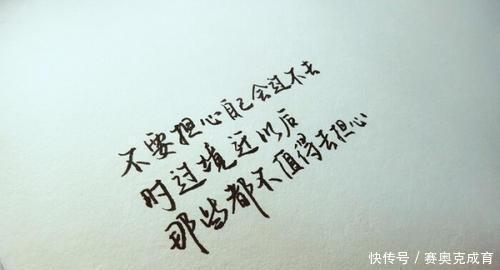 不要担心自己会过不去
时过境迁以后
那些都不值得去担心
快传号／赛奥克成育